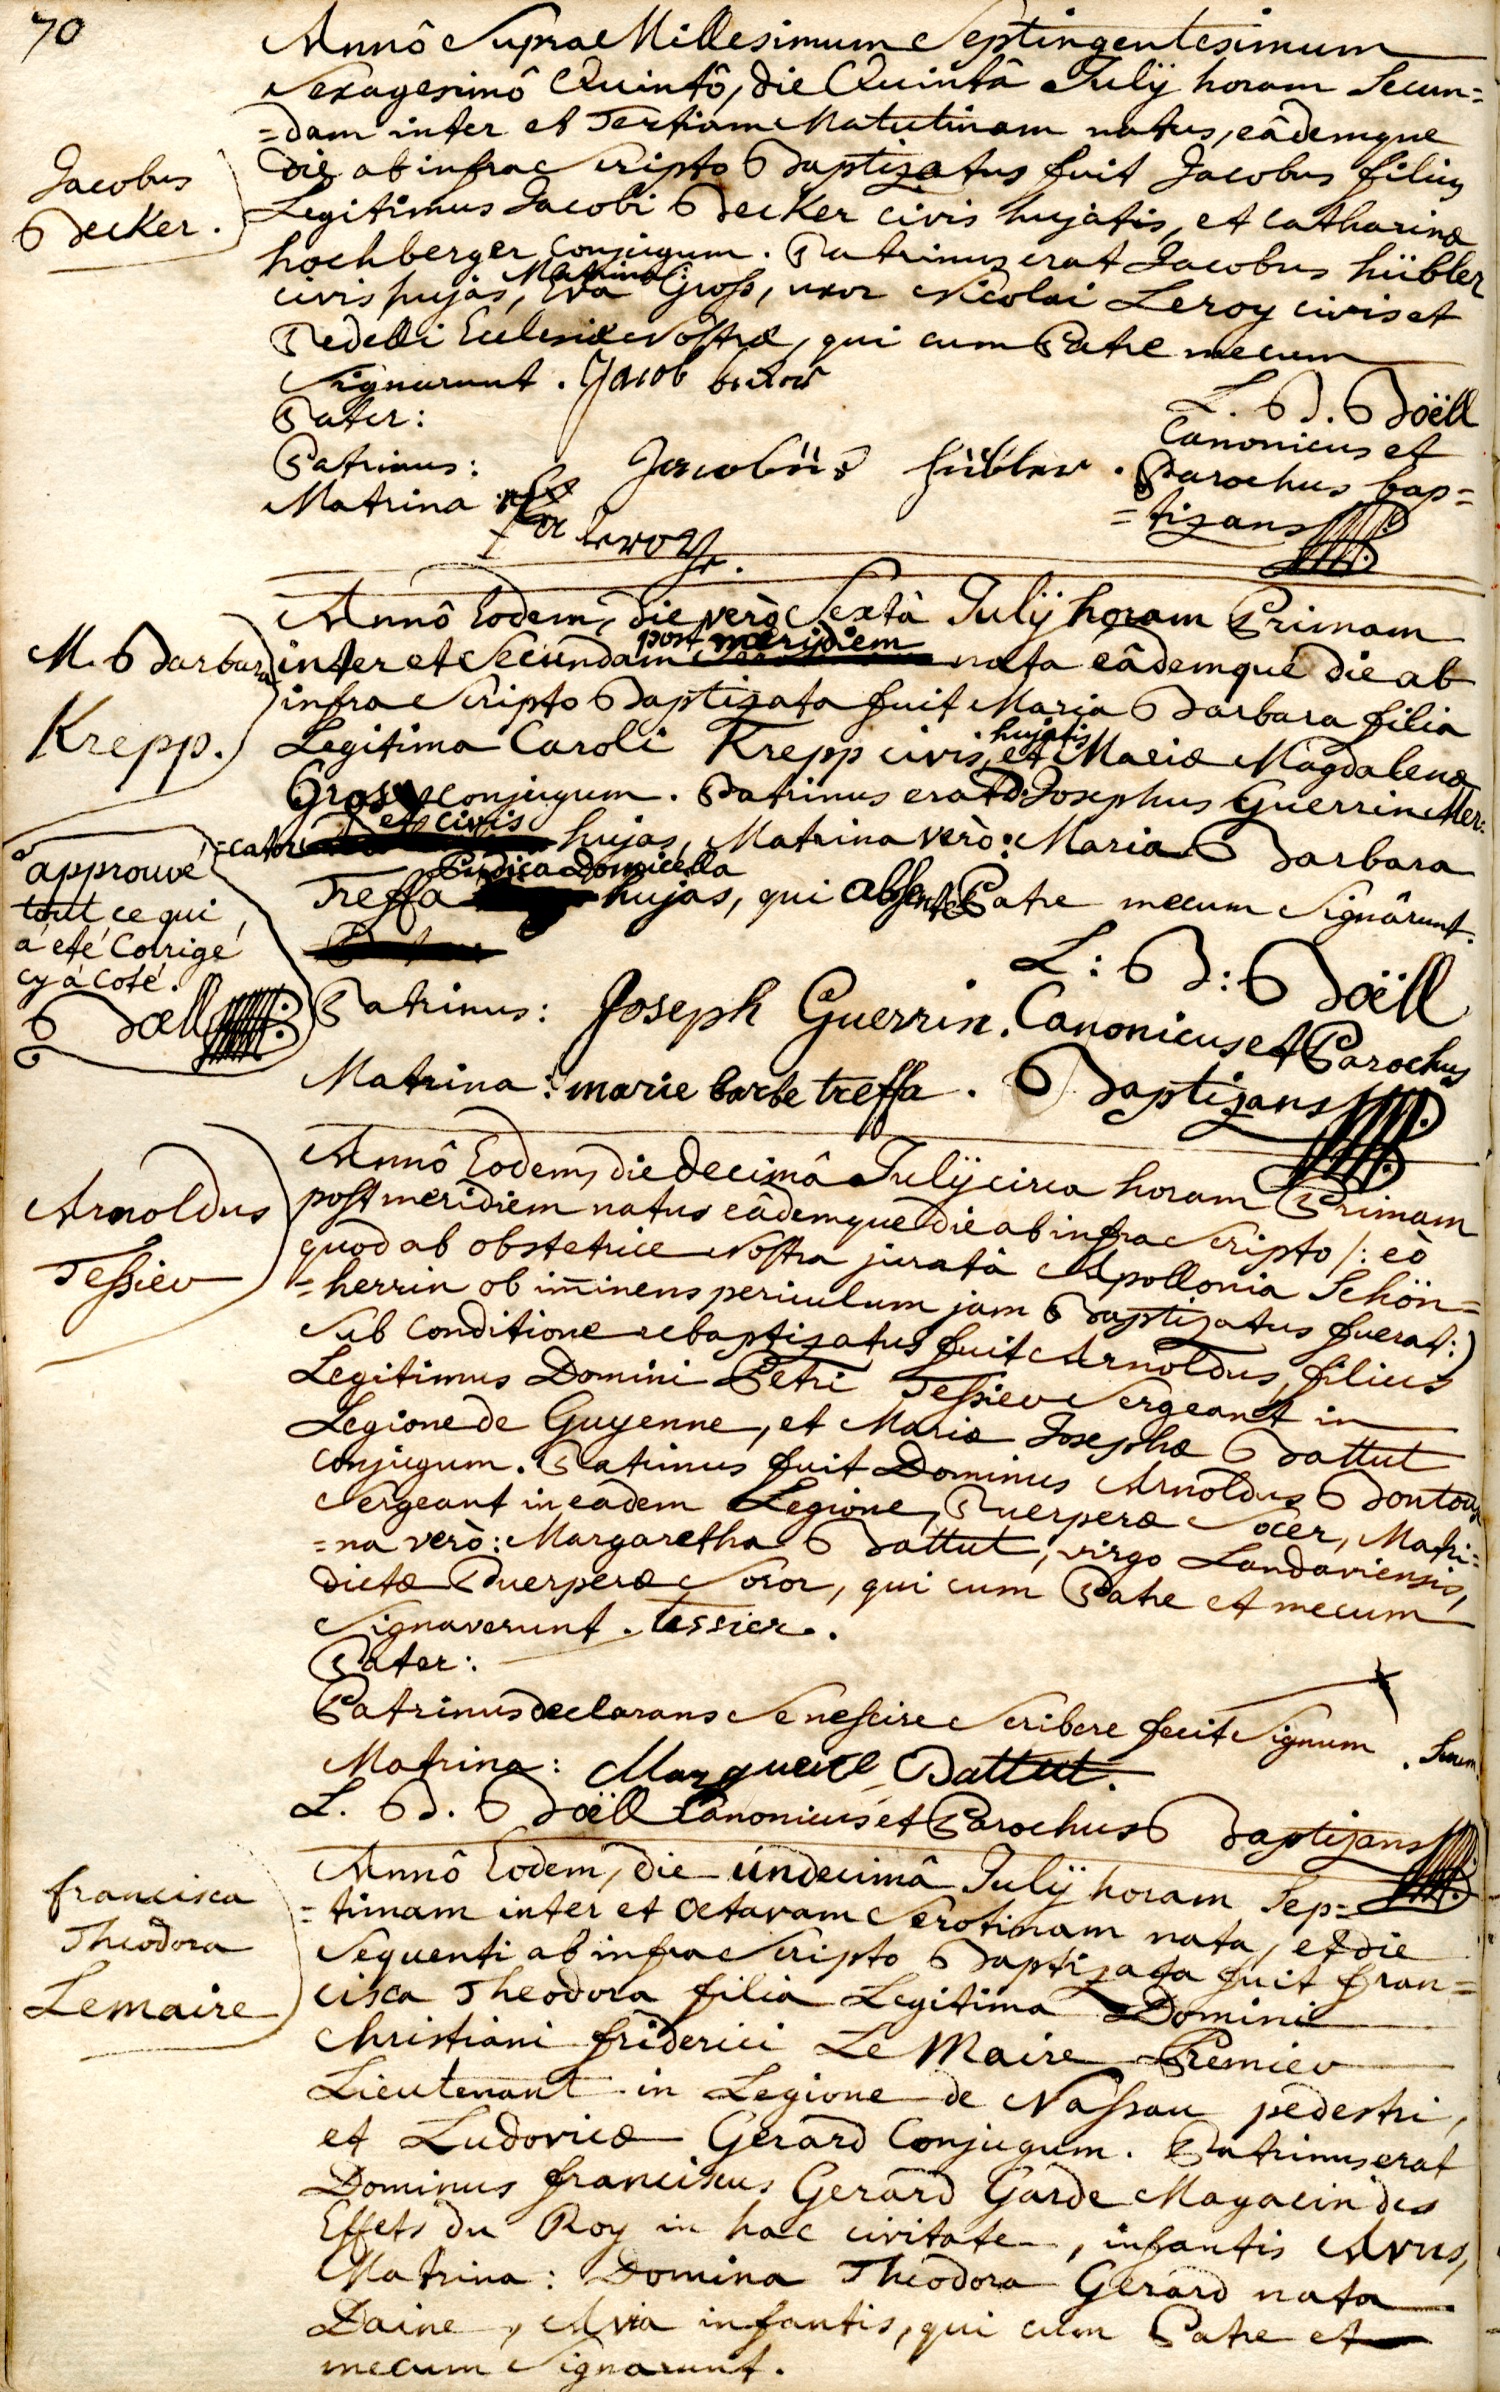 70
Annô Supra Millesimum Septingentesimum
Sexagesimô Quintô, die Quintâ Julÿ horam Secun=
=dam inter et Tertiam Matutinam natus, eâdemque
die ab infra Scripto Baptizatus fuit Jacobus filius
Jacobus
Becker.
Legitimus Jacobi Becker civis hujatis, et Catharinæ
hochberger conjugum. Patrinus erat Jacobus hübler
civis hujas, Matrina Eva Groß, uxor Nicolai Leroy civis et
Pedelli Ecclesiæ Nostræ, qui cum Patre mecum
Signarunt. Jacob
Pater:
Patrinus: Jacobüs hübler.
Matrina Leroy.
L. B. Boëll
Canonicus et
Parochus bap=
=tizans
Annô Eodem, die verò Sextâ Julÿ horam Primam
inter et Secundam post meridiem nata eâdemque die ab
infra Scripto Baptizata fuit Maria Barbara filia
M. Barbara
Krepp.
Legitima Caroli Krepp civis hujatis, et Mariæ Magdalenæ
Gross conjugum. Patrinus erat D. Josephus Guerrin Mer=
=cator et civis hujas, Matrina verò: Maria Barbara
Treffa Pudica Domicella hujas, qui absente Patre mecum Signârunt.
approuvé
tout ce qui
a été Corrigé
cy à coté.
Boell
Patrinus: Joseph Guerrin.
Matrina: marie barbe treffa.
L: B: Boëll
Canonicus et Parochus
Baptizans
Annô Eodem, die decimâ Julÿ circa horam Primam
post meridiem natus eâdemque die ab infra Scripto /: eò
quod ab obstetrice Nostra jurata Apollonia Schön=
=herrin ob iminens periculum jam Baptizatus fuerat:)
Arnoldus
Teßier
Sub Conditione rebaptizatus fuit Arnoldus, filius
Legitimus Domini Petri Teßier Sergeant in
Legione de Guyenne, et Mariæ Josephæ Battut
conjugum. Patrinus fuit Dominus Arnoldus
Sergeant in eadem Legione, Puerperæ Socer, Matri=
=na verò: Margaretha Battut, virgo Landaviensis,
dictæ Puerperæ Soror, qui cum Patre et mecum
Signaverunt. tessier.
Pater:
Patrinus declarans Se nescire Scribere fecit Signum
Suum.
Matrina: Marguerite Battut.
L. B. Boëll Canonicus et Parochus Baptizans
Annô Eodem, die undecimâ Julÿ horam Sep=
=timam inter et Octavam Serotinam nata, et die
Sequenti ab infra Scripto Baptizata fuit fran=
francisca
Theodora
Lemaire
cisca Theodora filia Legitima Domini
Christiani friderici Le Maire Premier
Lieutenant in Legione de Naßau pedestri,
et Ludovicæ Gerard Conjugum. Patrinus erat
Dominus franciscus Gerard Garde Magacin des
Effets du Roy in hac civitate, infantis Avus,
Matrina: Domina Theodora Gerard nata
Daine, Avia infantis, qui cum Patre et
mecum Signarunt.